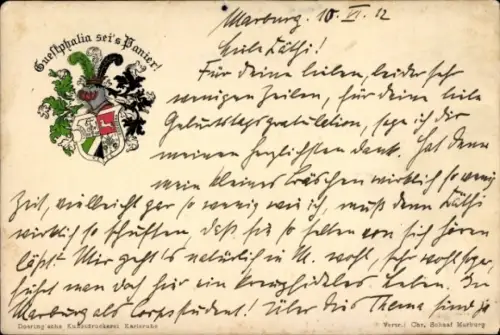 Guestphalia sei's Panier!
Marburg. 10. VI. 12
Liebe Käthi!
Für deine lieben, leider sehr
wenigen Zeilen, für deine liebe
Geburtstagsgratulation, sage ich dir
meinen herzlichsten Dank. Hat denn
mein kleines Bäschen wirklich so wenig
Zeit, vielleicht gar so wenig wie ich, muß denn Käthi
wirklich so schuften, daß sie so selten von sich hören
läßt? Mir geht's natürlich in M. wohl, sehr wohl sogar,
führt man doch hier ein kreuzfideles Leben. In
Marburg als Corpsstudent! Über das Thema sind ja
Doering'sche Kunstdruckerei Karlsruhe
Verm.: Chr. Schaaf Marburg